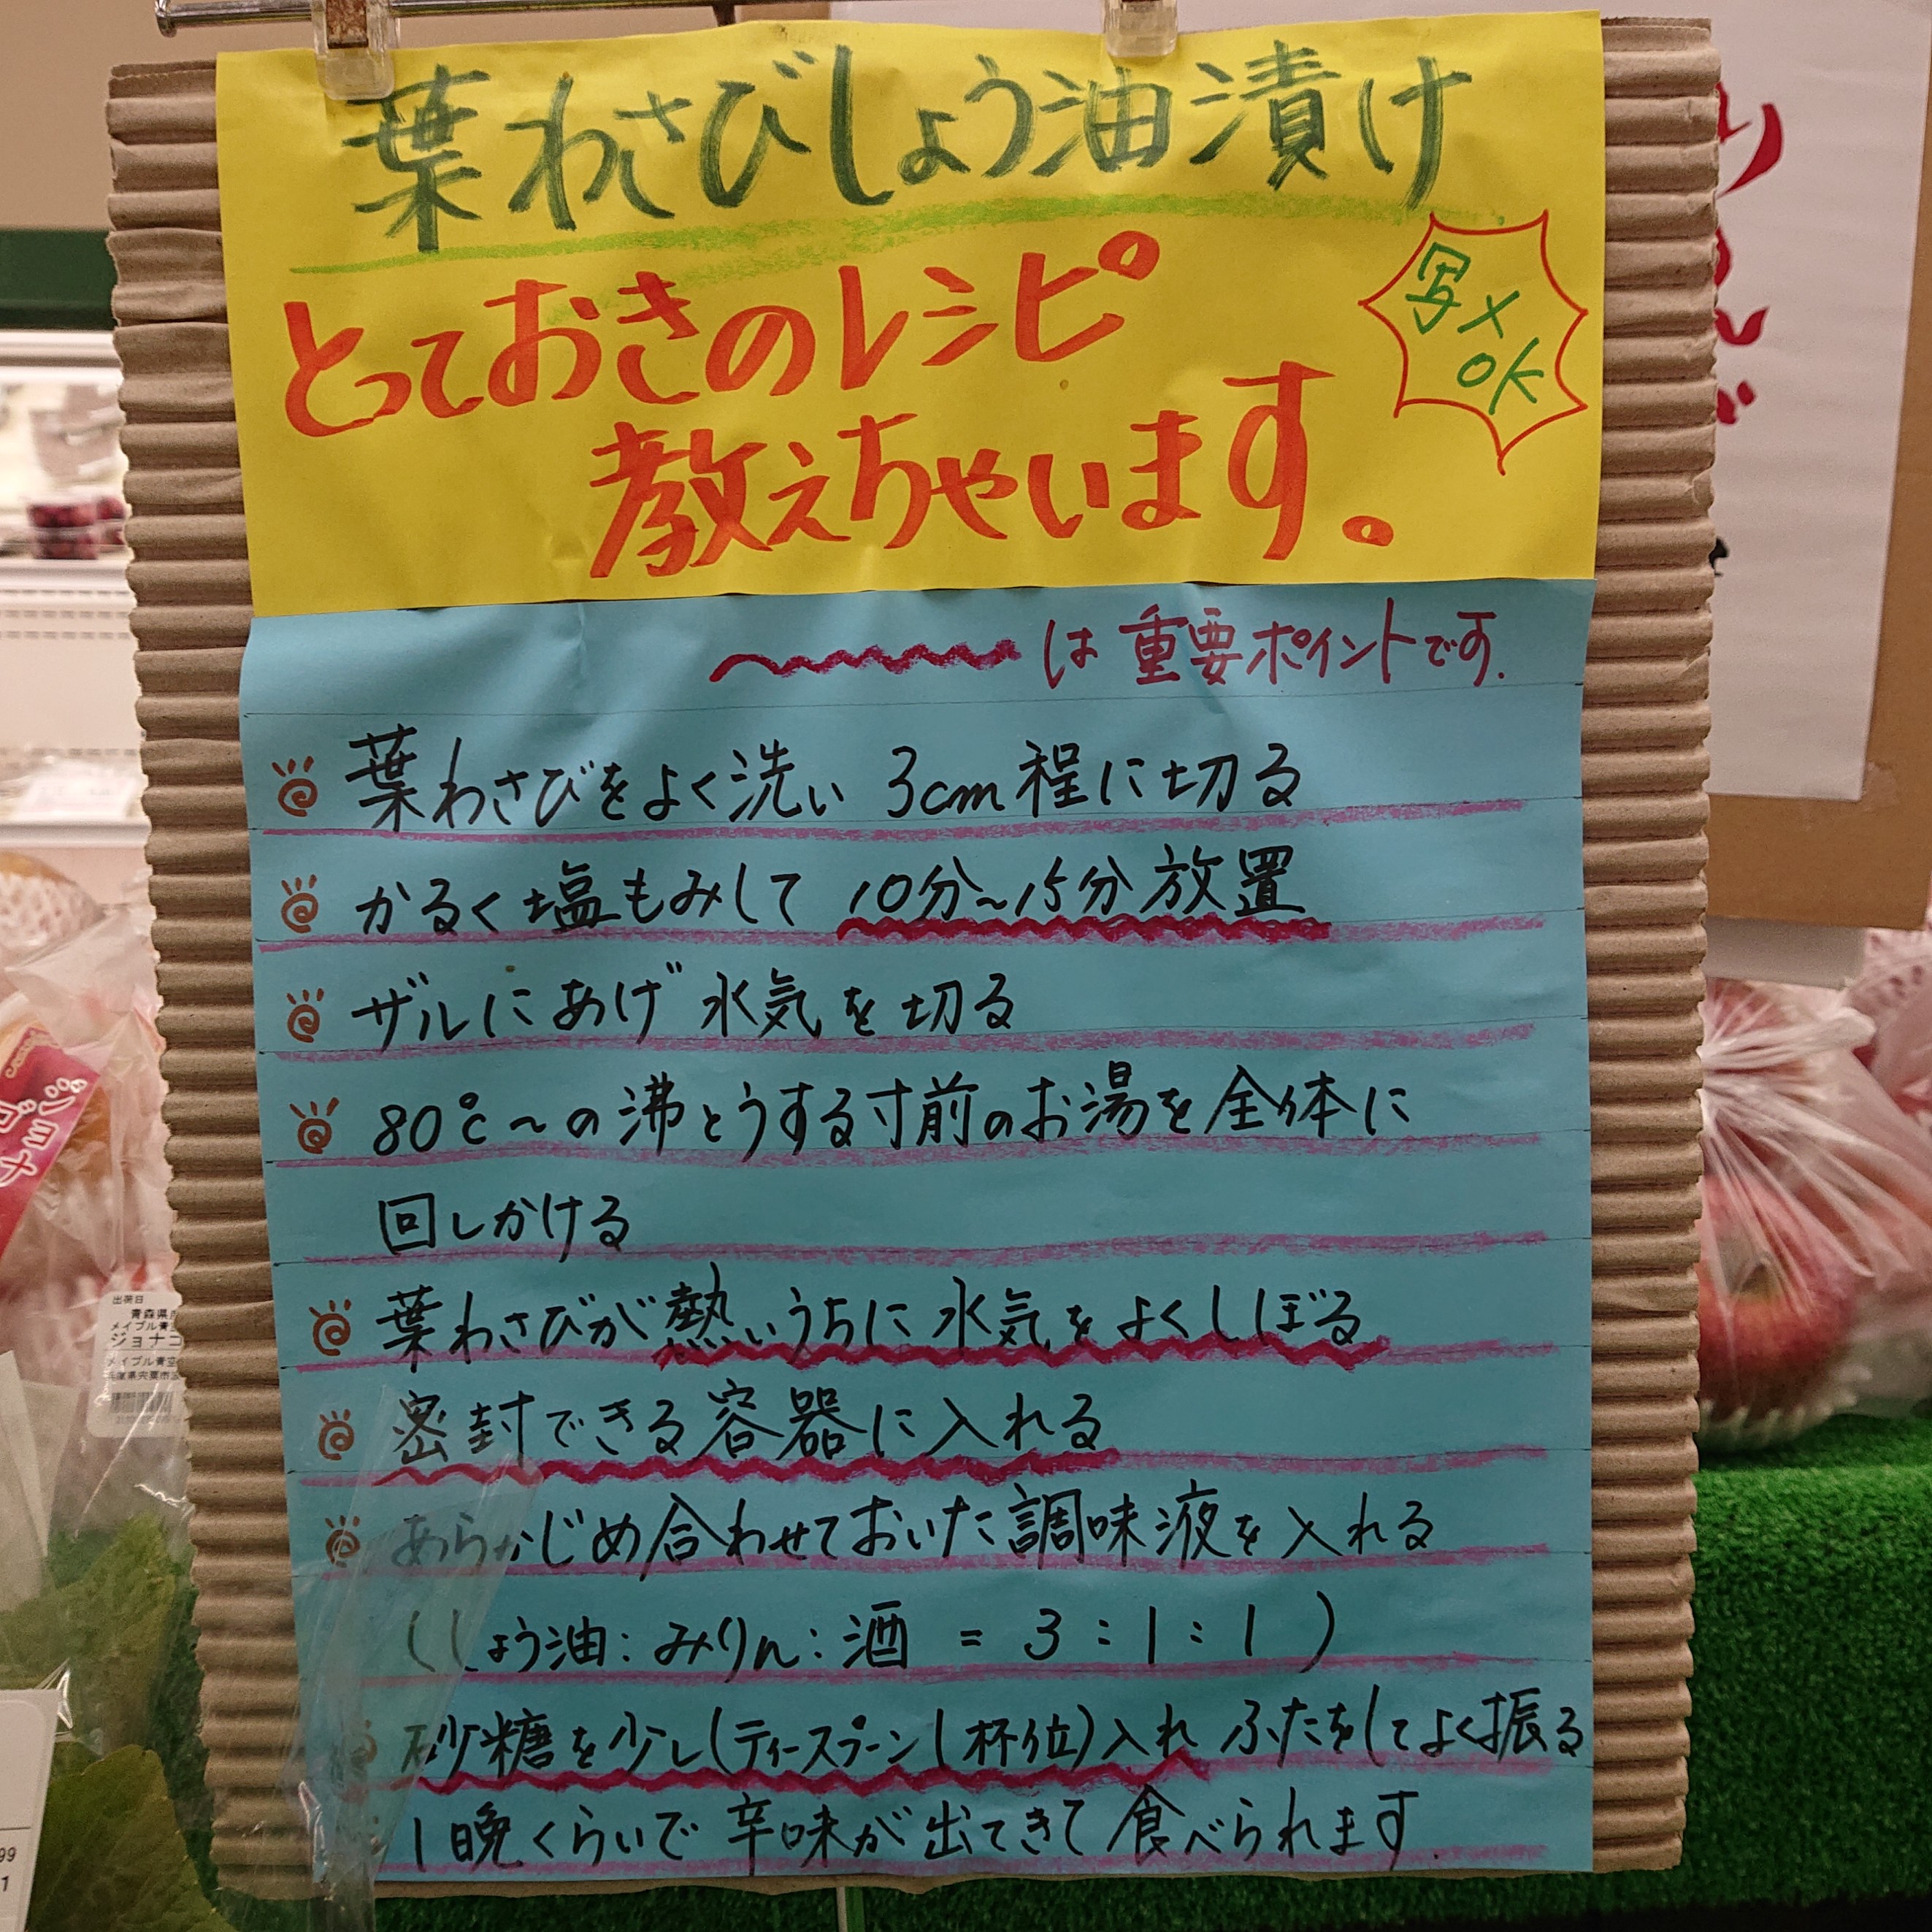 葉わさびしょう油漬け
とっておきのレシピ
教えちゃいます。
写メ
OK
は重要ポイントです.
葉わさびをよく洗い 3cm程に切る
かるく塩もみして 10分~15分放置
ザルにあげ 水気を切る
80℃~の沸とうする寸前のお湯を全体に
回しかける
葉わさびが熱いうちに水気をよくしぼる
密封できる容器に入れる
あらかじめ合わせておいた調味液を入れる
(しょう油:みりん:酒 = 3:1:1)
砂糖を少し(ティースプーン1杯位)入れ ふたをしてよく振る
1晩くらいで 辛味が出てきて食べられます.
出荷日
青森県
メイプル青
ジョナゴ
メイプル青空
兵庫県宍粟市
ジョナ
99
1